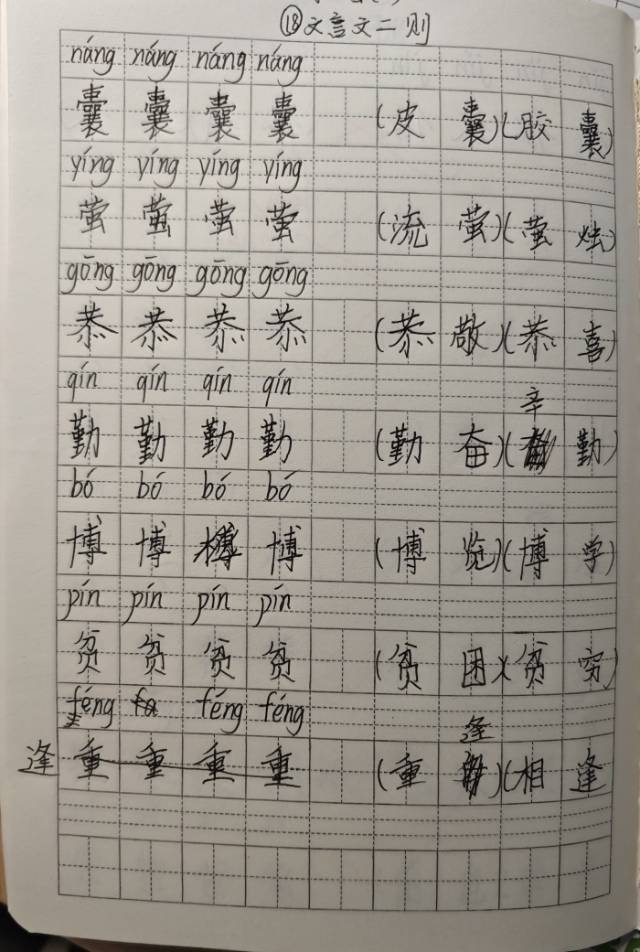 ⑱文言文二则
náng náng náng náng
囊 囊 囊 囊 (皮 囊)(胶 囊)
yíng yíng yíng yíng
萤 萤 萤 萤 (流 萤)(萤 烛)
gōng gōng gōng gōng
恭 恭 恭 恭 (恭 敬)(恭 喜)
qín qín qín qín
辛
勤 勤 勤 勤 (勤 奋)( 勤)
bó bó bó bó
博 博 博 (博 览)(博 学)
pín pín pín pín
贫 贫 贫 贫 (贫 困)(贫 穷)
féng féng féng
逢
逢 重 重 重 重 (重 )(相 逢)